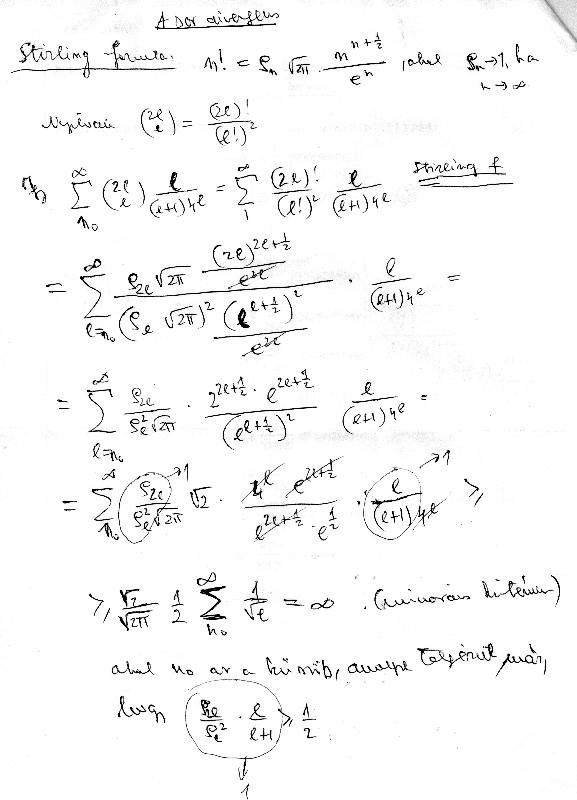 A sor divergens
Stirling formula: n! = ϱₙ √2π · n^(n+½) / eⁿ , ahol ϱₙ→1, ha n→∞
(2l l) = (2l)! / (l!)²
∑_{n₀}^∞ (2l l) l/((l+1)4^l) = ∑_1^∞ (2l)!/(l!)² l/((l+1)4^l) Stirling f
= ∑_{l=n₀}^∞ ϱ_{2l} √2π (2l)^(2l+½)/e^(2l) / ((ϱ_l √2π)² (l^(l+½))²/e^(2l)) · l/((l+1)4^l) =
= ∑_{l=n₀}^∞ ϱ_{2l}/(ϱ_l² √2π) · 2^(2l+½) · l^(2l+½) / (l^(l+½))² l/((l+1)4^l) =
= ∑_{n₀}^∞ ϱ_{2l}/(ϱ_l² √2π) →1 √2 · 4^l l^(2l+½) / (l^(2l+½) · l^½) · l/((l+1)4^l) →1 ≥
≥ √2/√2π ½ ∑_{n₀}^∞ 1/√l = ∞ . (minoráns kritérium)
ahol n₀ az a küszöb, amelyre teljesül már,
hogy ϱ_{2l}/ϱ_l² · l/(l+1) ≥ ½
↓
1